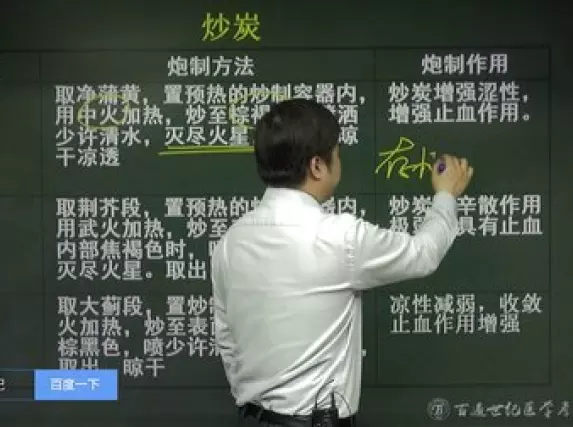 炒炭
炮制方法
炮制作用
取净蒲黄，置预热的炒制容器内，
用中火加热，炒至棕褐
洒
少许清水，灭尽火星
晾
干凉透
炒炭增强涩性，
增强止血作用。
取荆芥段，置预热的
用武火加热，炒至
内部焦褐色时，
灭尽火星。取出
炒炭
辛散作用
具有止血
取大蓟段，置炒
火加热，炒至表面
棕黑色，喷少许清
取出，晾干
凉性减弱，收敛
止血作用增强
百度一下
百通世纪医学